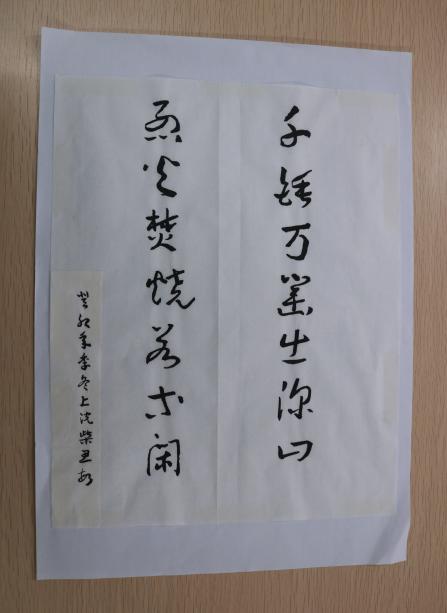 千锤万凿出深山
烈火焚烧若等闲
癸卯年季冬上浣柴